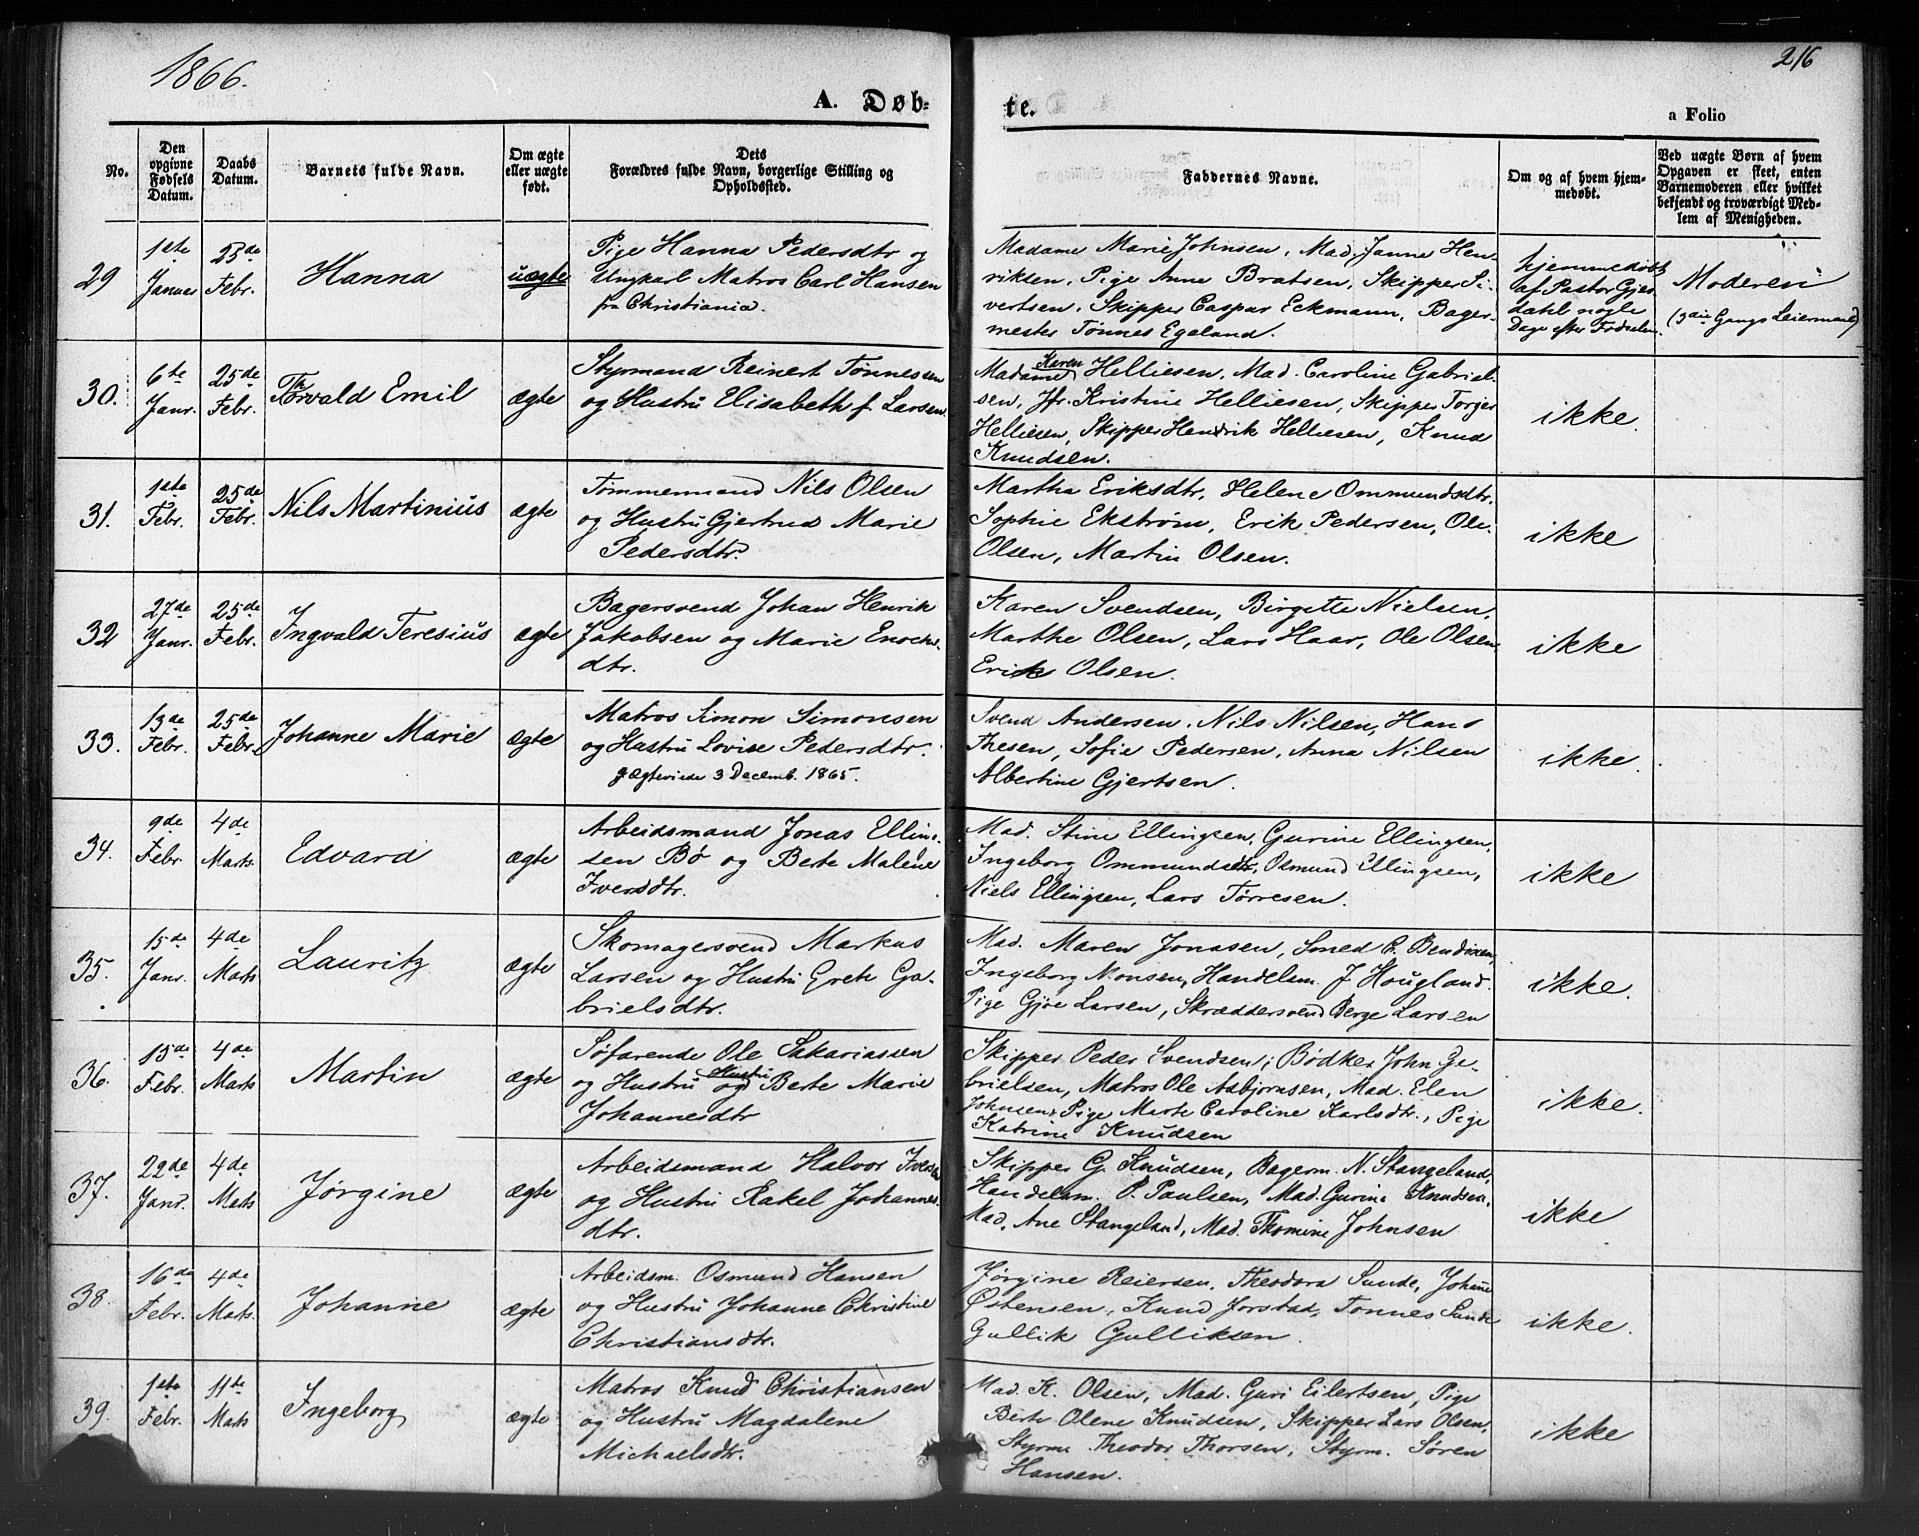 1866.
216
A. Døb-
te.
a Folio
No.
Den opgivne Fødsels Datum.
Daabs Datum.
Barnets fulde Navn.
Om ægte eller uægte født.
Dets Forældres fulde Navn, borgerlige Stilling og Opholdssted.
Faddernes Navne.
Om og af hvem hjemmedøbt.
Ved uægte Børn af hvem Opgaven er skeet, enten Barnemoderen eller hvilket bekjendt og troværdigt Medlem af Menigheden.
29
1ste Januar
25de Febr.
Hanna
uægte
Pige Hanna Pedersdtr og
Ungkarl Matros Carl Hansen
fra Christiania.
Madame Marie Johnsen, Mad. Janne Hen-
riksen, Pige Anne Bratsen, Skipper Si-
vertsen, Skipper Caspar Eckmann, Bager-
mester Tønnes Egeland.
hjemmedøbt
af Pastor Gjes
dahl nogle
Dage efter Fødselen.
Moderen
(3die Gangs Leiermaal)
30.
6te Janr.
25de Febr.
Thorvald Emil
ægte
Styrmand Reinert Tønnesen
og Hustru Elisabeth f. Larsen
Madame Karen Helliesen, Mad. Caroline Gabriel-
sen, Jfr. Kristine Helliesen, Skipper Torjer
Helliesen, Skipper Hendrik Helliesen, Knud
Knudsen.
ikke.
31.
1ste Febr.
25de Febr.
Nils Martinius
ægte
Tømmermand Nils Olsen
og Hustru Gjertrud Marie
Pedersdtr.
Martha Eriksdtr, Helene Ommundsdtr.
Sophie Ekstrøm, Erik Pedersen, Ole
Olsen, Martin Olsen.
ikke
32
27de Janr.
25de Febr.
Ingvald Teresius
ægte
Bagersvend Johan Henrik
Jakobsen og Marie Enochs-
dtr.
Karen Svendsen, Birgitte Nielsen,
Marthe Olsen, Lars Haar, Ole Olsen,
Erik Olsen.
ikke
33.
13de Febr.
25de Febr.
Johanne Marie
ægte
Matros Simon Simonsen
og Hustru Lovise Pedersdtr.
gægteviede 3 Decemb. 1865.
Svend Andersen, Nils Nilsen, Hans
Thesen, Sofie Pedersen, Anna Nilsen
Albertine Gjertsen.
ikke.
34.
9de Febr.
4de Marts.
Edvard
ægte
Arbeidsmand Jonas Elling-
sen Bø og Berte Malene
Iversdtr.
Mad. Stine Ellingsen, Gurine Ellingsen,
Ingeborg Ommundsdtr, Osmund Ellingsen,
Niels Ellingsen, Lars Tørresen.
ikke
35.
15de Janr.
4de Marts
Lauritz
ægte
Skomagersvend Markus
Larsen og Hustru Grete Ga-
brielsdtr.
Mad. Maren Jonasen, Smed C. Bendixen,
Ingeborg Monsen, Handelsm. J. Hougland.
Pige Gjøe Larsen, Skræddersvend Berge Larsen
ikke.
36.
15de Febr.
4de Marts
Martin
ægte
Søfarende Ole Sakariassen
og Hustru og Hustru Berte Marie
Johannesdtr
Skipper Peder Svendsen, Bødker John Ge-
brielsen, Matros Ole Asbjørnsen, Mad. Elen
Johnsen, Pige Marte Caroline Karlsdtr., Pige
Katrine Knudsen
ikke.
37.
22de Janr.
4de Marts
Jørgine
ægte
Arbeidsmand Halvor Iversen
og Hustru Rakel Johannes-
dtr.
Skipper G. Knudsen, Bagerm. N. Stangeland,
Handelsm. P. Paulsen, Mad. Gurine Knudsen,
Mad. Ane Stangeland, Mad. Thomine Johnsen
ikke
38.
16de Febr.
4de Marts.
Johanne
ægte
Arbeidsm. Osmund Hansen
og Hustru Johanne Christine
Christiansdtr.
Jørgine Reiersen, Theodora Sunde, Johanne
Østensen, Knud Jorstad, Tønnes Sunde
Gullik Gulliksen.
ikke.
39.
1ste Febr.
11te Marts
Ingeborg
ægte
Matros Knud Christiansen
og Hustru Magdalene
Michaelsdtr.
Mad. K. Olsen, Mad. Guri Eilertsen, Pige
Berte Olene Knudsen, Skipper Lars Olsen,
Styrm. Theodor Thorsen, Styrm. Søren
Hansen.
ikke